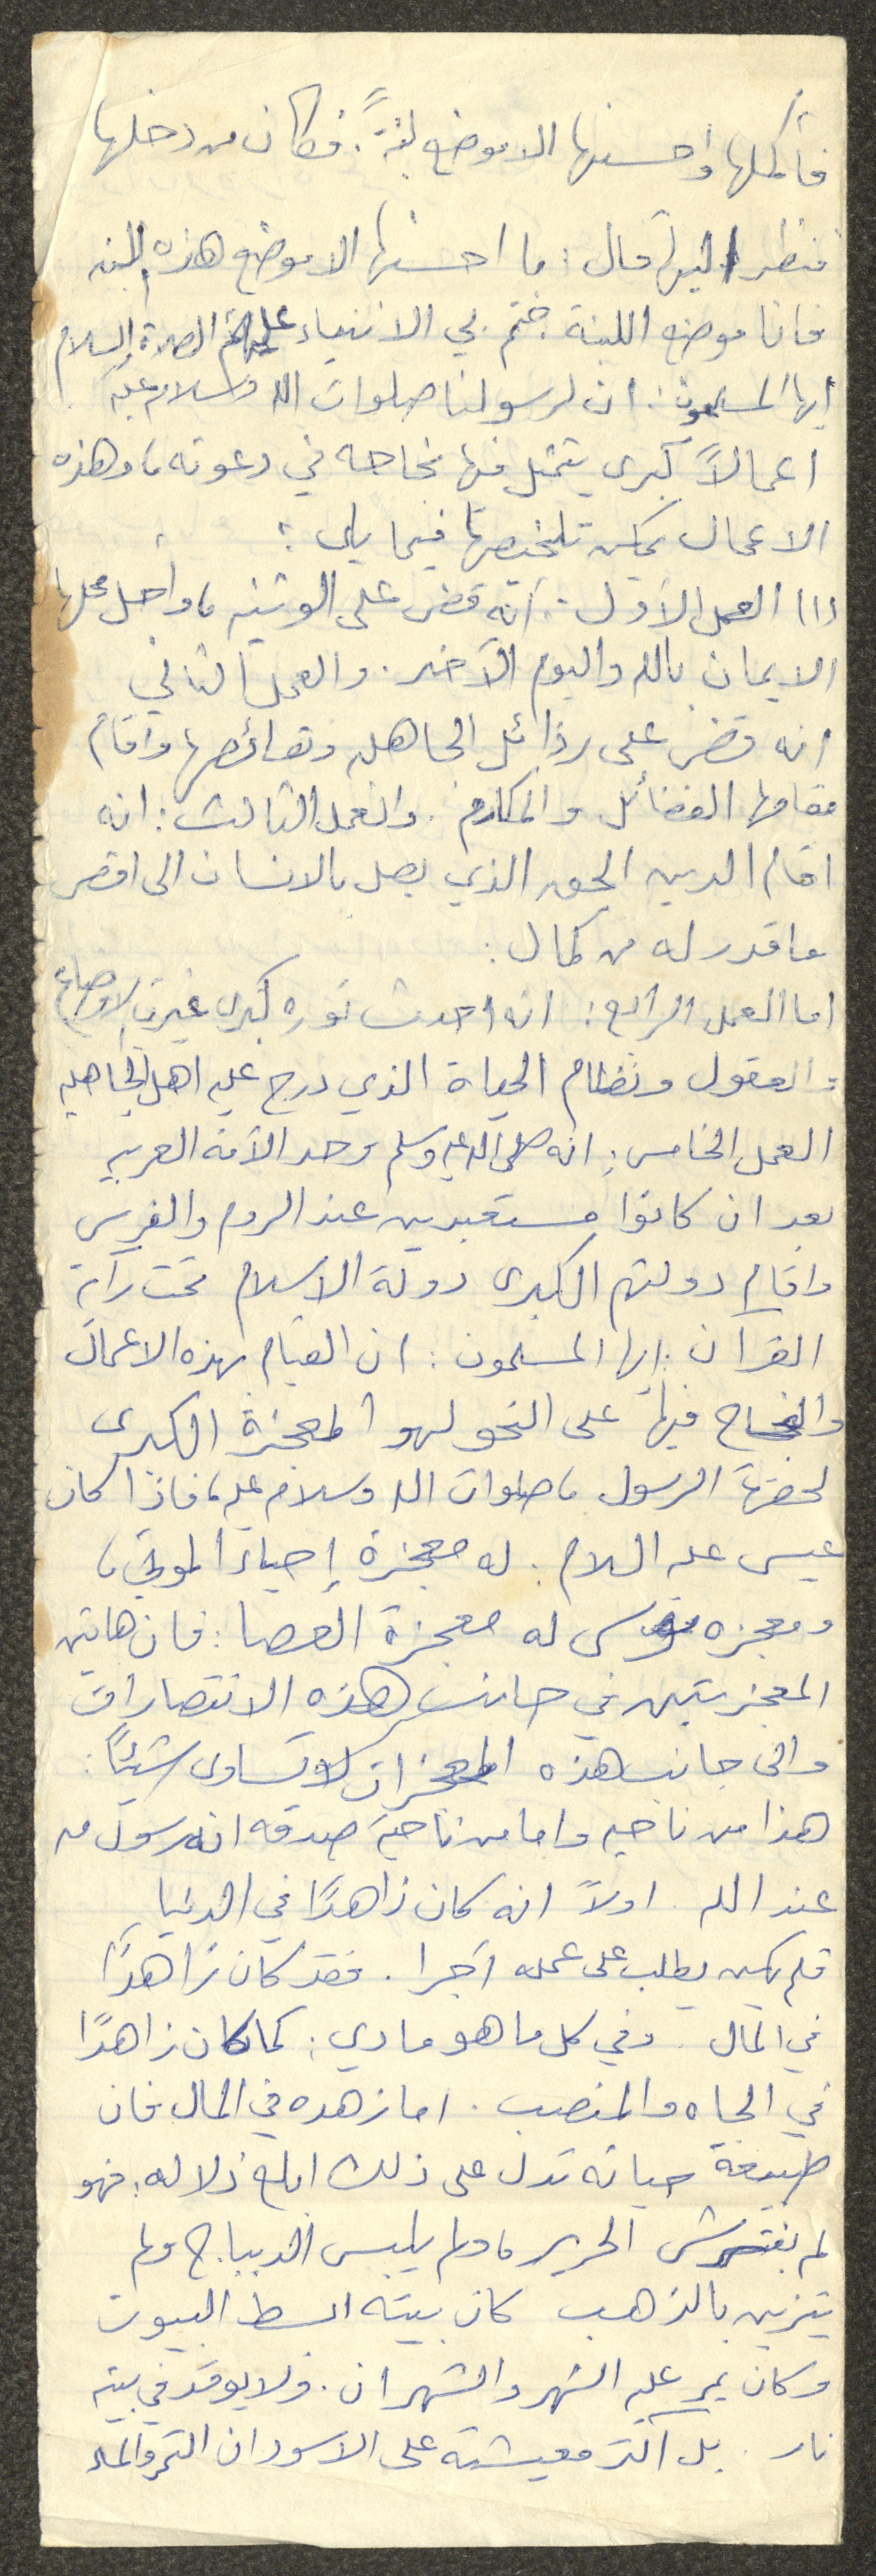 فأكملها وأحسنها الا موضع لبنةً. فكان من دخلها
فنظر اليها قال: ما احسنها الا موضع هذه اللبنه
فانا موضع اللبنة ختم بي الانبياء عليهم الصلاة والسلام
ايها المسلمون: ان لرسولنا صلوات الله وسلام عليه
اعمالاً كبرى يتمثل فيها نجاحه في دعوته، وهذه
الاعمال يمكن تلخيصها فيما يلي:
(١) العمل الأول: أنه قضى على الوثنيه، واحل محلها
الايمان بالله واليوم الآخر. والعمل الثاني
انه قضى على رذائل الجاهليه ونقائصها واقام
مقامها الفضائل والمكارم. والعمل الثالث: انه
اقام الدين الحق الذي يصل بالانسان الى اقصى
ما قدر له من كمال:
اما العمل الرابع: انه احدث ثوره كبرى غيرت الاوضاع
والعقول ونظام الحياة الذي درج عليه اهل الجاهليه
العمل الخامس: انه صلى الله عليه وسلم وحد الأمة العربيه
بعد ان كانوا مستعبدين عند الروم والفرس
واقام دولتهم الكبرى دولة الاسلام تحت راية
القرآن: ايها المسلمون: ان القيام بهذه الاعمال
والنجاح فيها على النحو لهو المعجزة الكبرى
لحضرة الرسول، صلوات الله وسلام عليه، فاذا كان
عيسى عليه السلام. له معجزة إحياء الموتى،
ومعجزه موسى له معجزة العصا: فان هاتين
المعجزتين في جانب هذه الانتصارات
والى جانب هذه المعجزات لا تساوى شيئاً:
هذا من ناحيه واما من ناحية صدقه انه رسول من
عند الله. اولاً انه كان زاهدًا في الدنيا
فلم يكن يطلب على عمله أجرا. فقد كان زاهدًا
في المال. وفي كل ما هو مادي: كما كان زاهدًا
في الجاه والمنصب. اما زهده في المال فان
طبيعة حياته تدل على ذلك ابلغ دلاله: فهو
لم يفترش الحرير، ولم يلبس الديباج ولم
يتزين بالذهب كان بيته ابسط البيوت
وكان يمر عليه الشهر والشهران. ولا يوقد في بيته
نار. بل اكثر معيشته على الاسودان التمر والماء